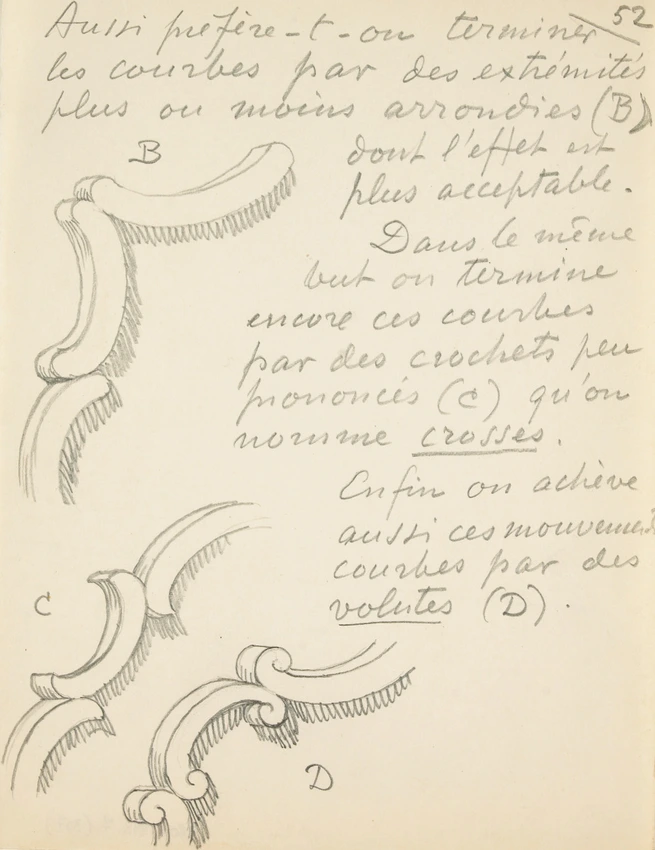 52
Aussi préfère-t-on terminer
les courbes par des extrémités
plus ou moins arrondies (B)
B
dont l'effet est
plus acceptable.
Dans le même
but on termine
encore ces courbes
par des crochets peu
prononcés (C) qu'on
nomme crosses.
Enfin on achève
aussi ces mouvements
courbes par des
volutes (D).
C
D